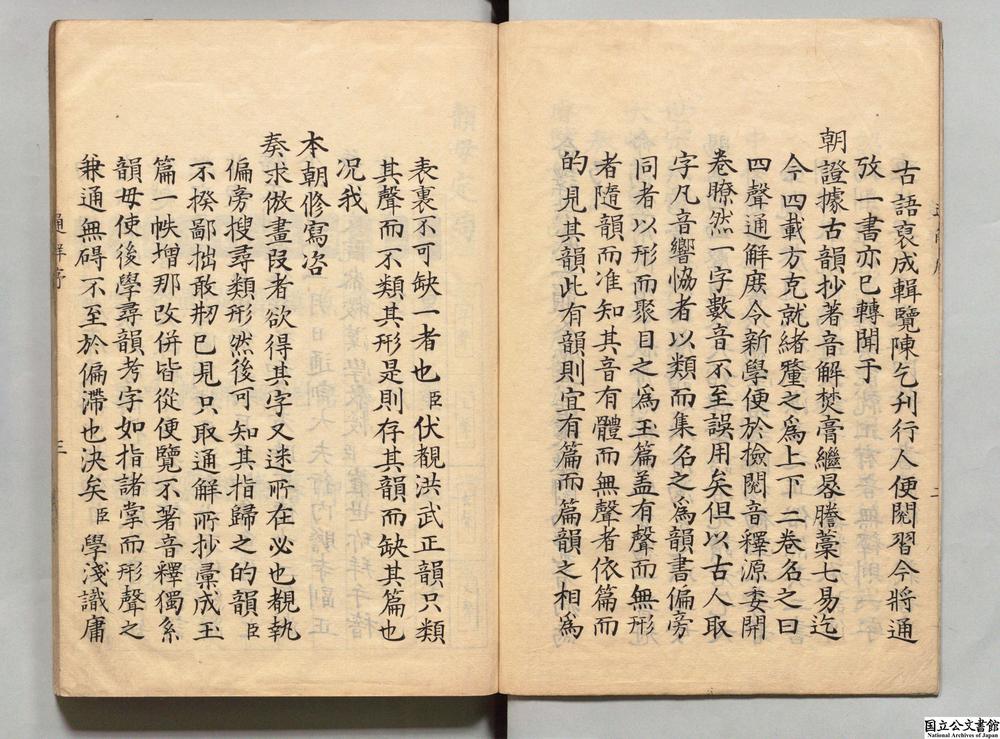 古語裒成輯覽陳乞刊行人便閱習今將通
攷一書亦已轉聞于
朝證據古韻抄著音解焚膏繼晷謄藁七易迄
今四載方克就緒釐之爲上下二卷名之曰
四聲通解庶令新學便於檢閱音釋源委開
卷瞭然一字數音不至誤用矣但以古人取
字凡音響恊者以類而集名之爲韻書偏旁
同者以形而聚目之爲玉篇盖有聲而無形
者隨韻而准知其音有體而無聲者依篇而
的見其韻此有韻則宜有篇而篇韻之相爲
表裏不可缺一者也臣伏覩洪武正韻只類
其聲而不類其形是則存其韻而缺其篇也
况我
本朝修寫咨
奏求倣畫段者欲得其字又迷所在必也覩執
偏旁搜尋類形然後可知其指歸之的韻臣
不揆鄙拙敢刱已見只取通解所抄彙成玉
篇一帙增那改併皆從便覽不著音釋獨系
韻毋使後學尋韻考字如指諸掌而形聲之
兼通無碍不至於偏滯也決矣臣學淺識庸
通解序
三
国立公文書館
National Archives of Japan